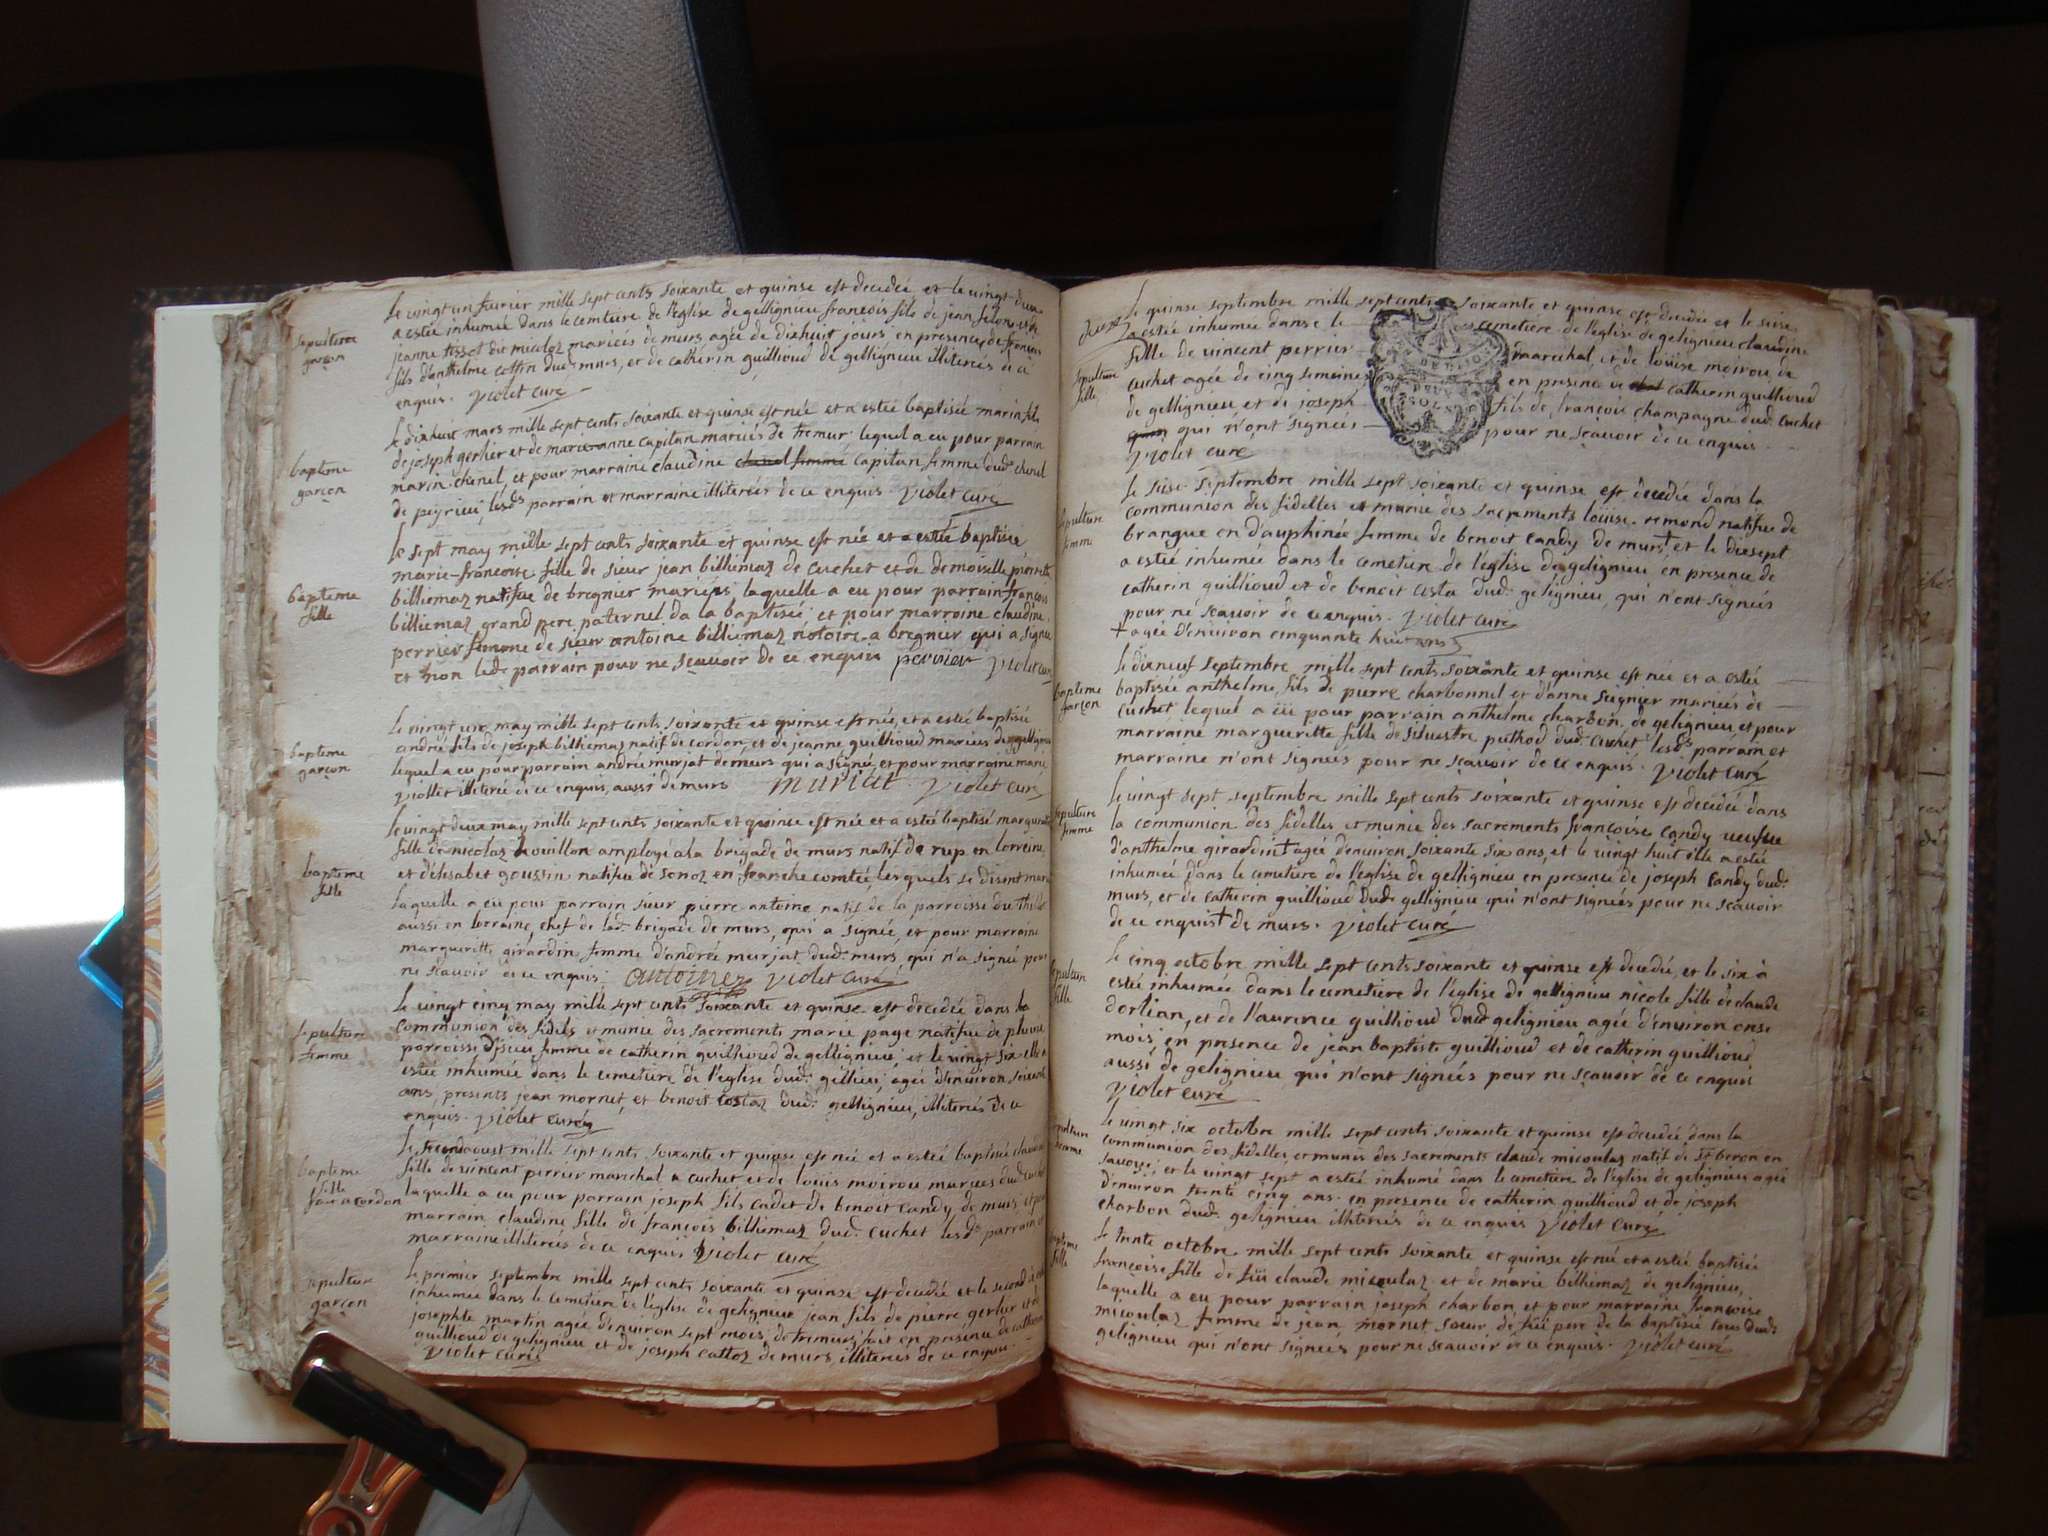 sepulture
garçon
Le vingt un feuvrier mille sept cents soixante et quinse est decedée et le vingt deux
a estée inhumée dans le cemetiere de l'eglise de gellignieu françois fils de jean
jeanne tissot dit micoloz mariées de murs agée de dixhuit jours en presence de françois
fils d'anthelme cottin dud. murs, et de catherin guillioud de gellignieu illiterés de ce
enquis. Violet curé
bapteme
garçon
Le dixhuit mars mille sept cents soixante et quinse est née et a estée baptisée marin fils
de joseph gerlier et de marie anne capitan mariés de tremur lequel a eu pour parrain
marin chenel, et pour marraine claudine capitan femme dud. chenel
de peyrieu, lesds parrain et marraine illiterées de ce enquis Violet curé
bapteme
fille
Le sept may mille sept cents soixante et quinse est née et a estée baptisée
marie-francoise fille de sieur jean billiemaz de cuchet et de demoiselle pierrette
billiemaz natifue de bregnier mariés, laquelle a eu pour parrain françois
billiemaz grand pere paternel da la baptisée et pour marraine claudine
perrier femme de sieur antoine billiemaz notaire a bregnier qui a signée
et non led. parrain pour ne sçauoir de ce enquis perrier Violet curé
bapteme
garçon
Le vingt un may mille sept cents soixante et quinse est née, et a estée baptisée
andré fils de joseph billiemaz natif de cordon, et de jeanne guillioud mariées de gellignieu
lequel a eu pour parrain andré murjat de murs qui a signé, et pour marraine marie
Viollet illiterée de ce enquis, aussi de murs murjat Violet curé
bapteme
fille
Le vingt deux may mille sept cents soixante et quinse est née et a estée baptisé marguerite
fille de nicolas houillon amployé a la brigade de murs natif de rup en lorreine
et d'elisabet goussin natifue de sonoz en franche comtée, lesquels se disent mariés
laquelle a eu pour parrain sieur pierre antoine natif de la parroisse du thillot
aussi en lorraine, chef de lad. brigade de murs, qui a signée, et pour marraine
marguerite girardin femme d'andrée murjat dud. murs, qui n'a signé pour
ne sçauoir de ce enquis. antoine Violet curé
sepulture
femme
Le vingt cinq may mille sept cents soixante et quinse est decedée dans la
communion des fidels et munie des sacrements marie page natifue de
parroisse d'isieu femme de catherin guillioud de gellignieu et le vingt six elle a
estée inhumée dans le cemetiere de l'eglise dud. gellieu agée d'enuiron soixante
ans, presents jean mornet, et benoit costaz dud. gellignieu, illiterés de ce
enquis. Violet curé
bapteme
fille
faite a cordon
Le second aoust mille sept cents soixante et quinse est née et a estée baptisée claudine
fille de vincent perrier marechal a cuchet et de louise moirou mariées dud. cuchet
laquelle a eu pour parrain joseph fils cadet de benoit candy de murs et pour
marraine claudine fille de françois billiemaz dud. cuchet lesds parrain et
marraine illiterés de ce enquis Violet curé
sepulture
garçon
Le premier septembre mille sept cents soixante et quinse est decedée et le second a estée
inhumée dans le cemetiere de l'eglise de gelignieu jean fils de pierre gerlier et de
josephte martin agée d'enuiron sept mois, de tremurs, fait en presence de catherin
guillioud de gelignieu et de joseph cattoz de murs, illiterés de ce enquis.
Violet curé
sepulture
fille
Le quinse septembre mille sept cents soixante et quinse est decedée et le seise
a estée inhumée danse le cemetiére de l'église de gelignieu claudine
fille de vincent perrier marechal, et de loüise moirou de
cuchet agée de cinq semaines en presence de catherin guillioud
de gellignieu et de joseph fils de françois champagne dud. cuchet
qui n'ont signées pour ne sçauoir de ce enquis
Violet curé
sepulture
femme
Le seise septembre mille sept soixante et quinse est decedée dans la
communion des fidelles et munie des sacrements loüise remond natifue de
brangue en dauphinée femme de benoit candy de murs+ et le diesept
a estée inhumée dans le cemetiere de l'église de gelignieu en presence de
catherin guillioud et de benoit costa dud. gelignieu, qui n'ont signées
pour ne sçauoir de ce enquis. Violet curé
+ agée d'enuiron cinquante huit ans
bapteme
garçon
Le dixneuf septembre mille sept cents soixante et quinse est née et a estée
baptisée anthelme, fils de pierre charbonnel et d'anne seignier mariées de
cuchet lequel a eü pour parrain anthelme charbon de gelignieu et pour
marraine marguerite fille de siluestre puthod dud. cuchet lesds parrain et
marraine n'ont signées pour ne sçauoir de ce enquis. Violet curé
sepulture
femme
Le vingt sept septembre mille sept cents soixante et quinse est decedée dans
la communion des fidelles et munie des sacrements françoise candy veufue
d'anthelme girardin+ agée d'enuiron soixante six ans, et le vingt huit elle a estée
inhumée dans le cemetiere de l'église de gellignieu en presence de joseph candy dud.
murs, et de catherin guillioud dud. gellignieu qui n'ont signées pour ne sçauoir
de ce enquis + de murs. Violet curé
sepulture
fille
Le cinq octobre mille sept cents soixante et quinse est decedée, et le six a
estée inhumée dans le cemetiere de l'église de gellignieu nicole fille de claude
dorlian, et de laurence guillioud dud. gelignieu agée d'enuiron onse
mois, en presence de jean baptiste guillioud et de catherin guillioud
aussi de gelignieu qui n'ont signées pour ne sçauoir de ce enquis
Violet curé
sepulture
Le vingt six octobre mille sept cents soixante et quinse est decedée dans la
communion des fidelles et munis des sacrements claude micoulaz natif de st beron en
sauoye, et le vingt sept a estée inhumé dans le cemetiere de l'église de gelignieu agée
d'enuiron trente cinq ans en presence de catherin guillioud et de joseph
charbon dud. gelignieu illiterés de ce enquis Violet curé
bapteme
fille
Le trente octobre mille sept cents soixante et quinse est née et a estée baptisée
françoise fille de feü claude micoulaz et de marie billiemaz de gelignieu,
laquelle a eu pour parrain joseph charbon et pour marraine françoise
micoulaz femme de jean mornet sœur de feü pere de la baptisée tous duds
gelignieu qui n'ont signées pour ne sçauoir de ce enquis. Violet curé